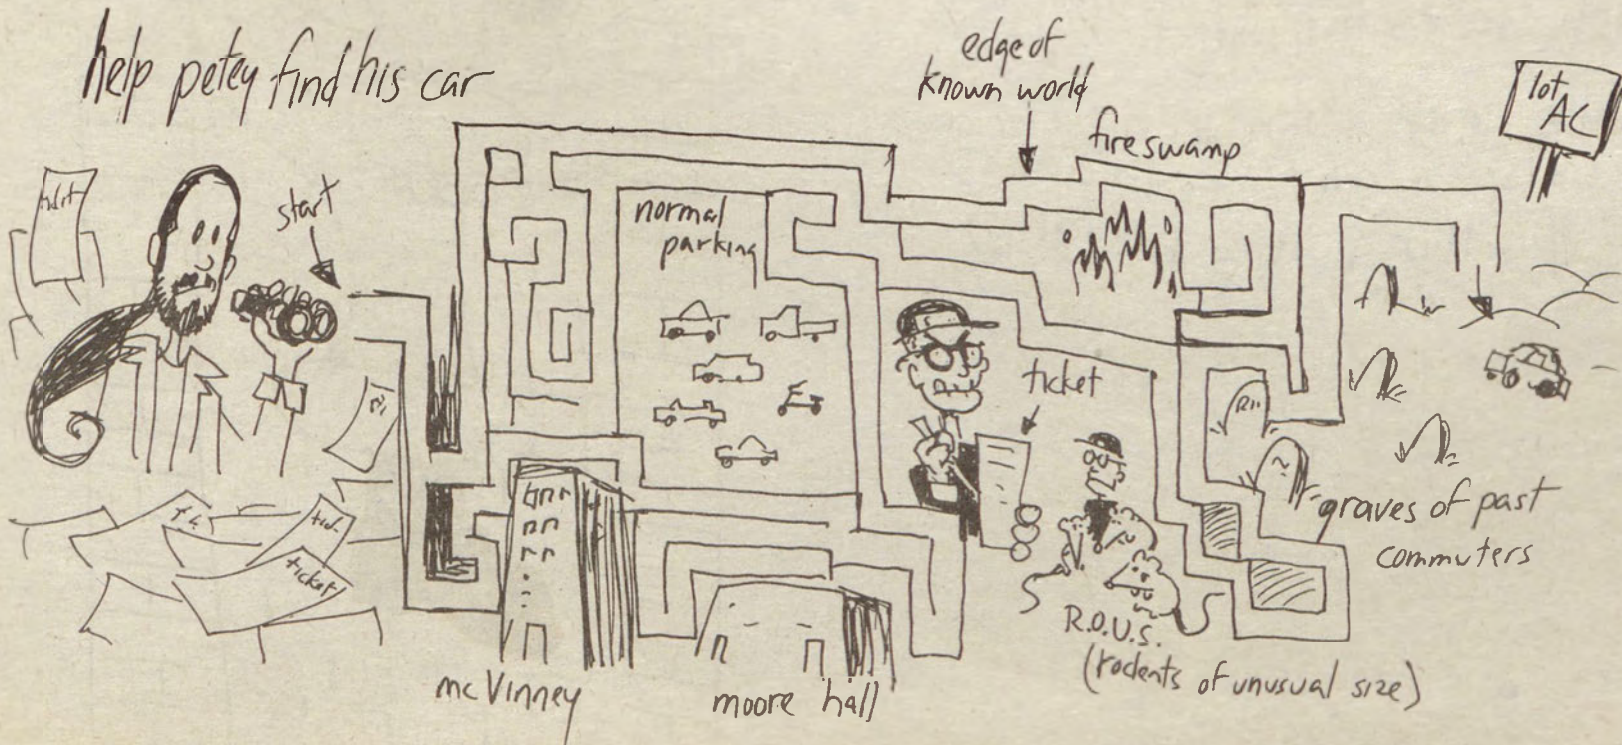 help petey find his car
edge of
known world
lot
AC
fireswamp
start
normal
parking
ticket
ticket
graves of past
commuters
R.O.U.S.
(rodents of unusual size)
mcVinney
moore hall